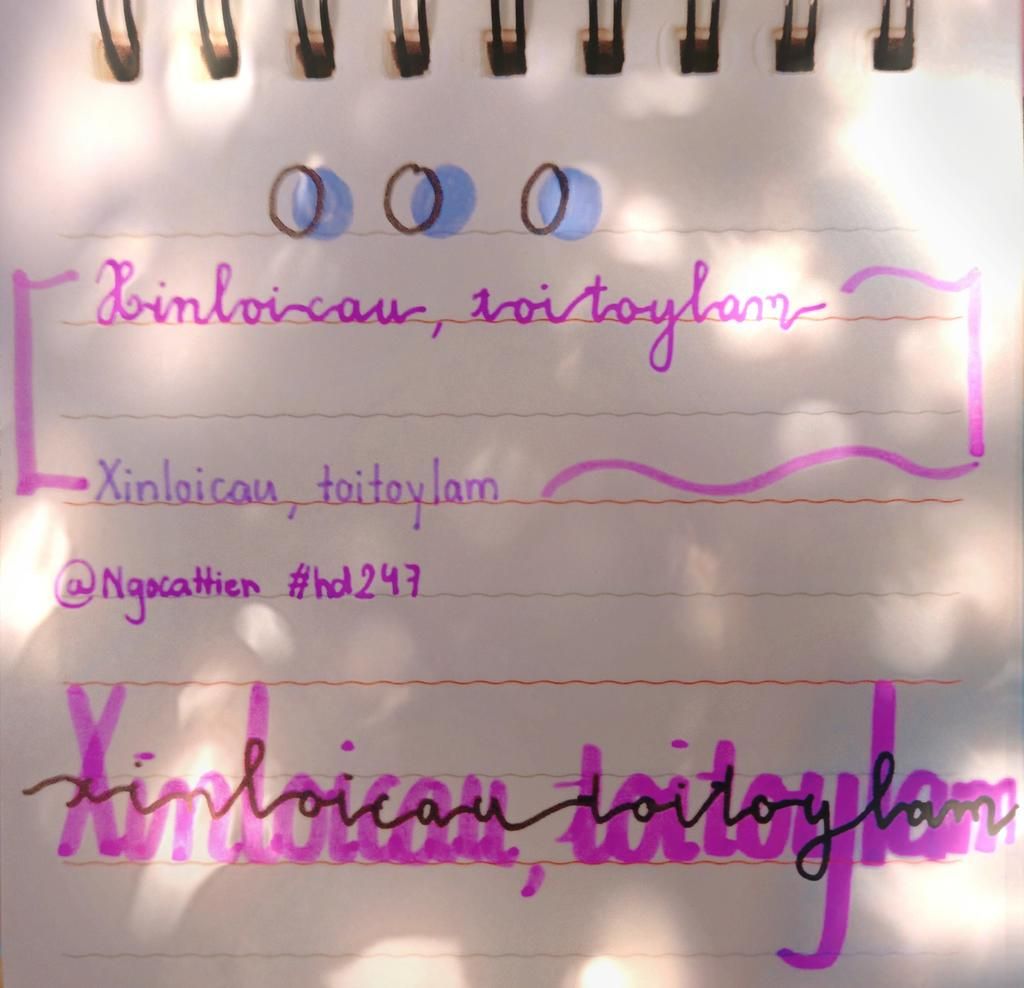 Xinloicau, toitoylam
Xinloicau, toitoylam
@Ngocattien #hdl247
Xinloicau, toitoylam
xinloicau toitoylam